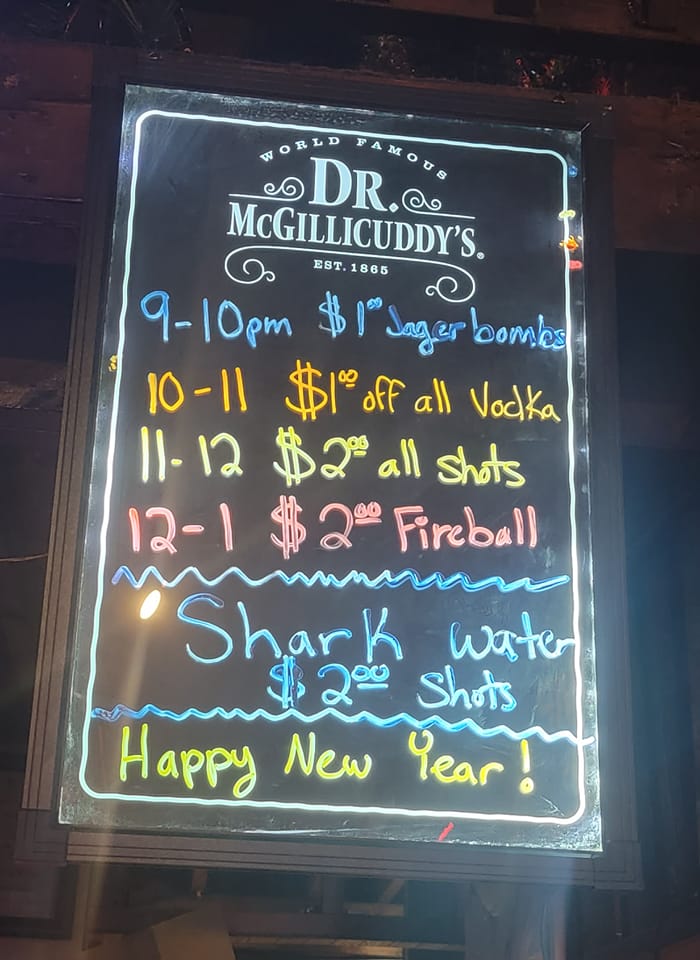 WORLD FAMOUS
DR.
McGILLICUDDY'S®
EST. 1865
9-10pm $1⁰⁰ Jager bombs
10-11 $1⁰⁰ off all Vodka
11-12 $2⁰⁰ all shots
12-1 $2⁰⁰ Fireball
Shark water
$2⁰⁰ Shots
Happy New Year!